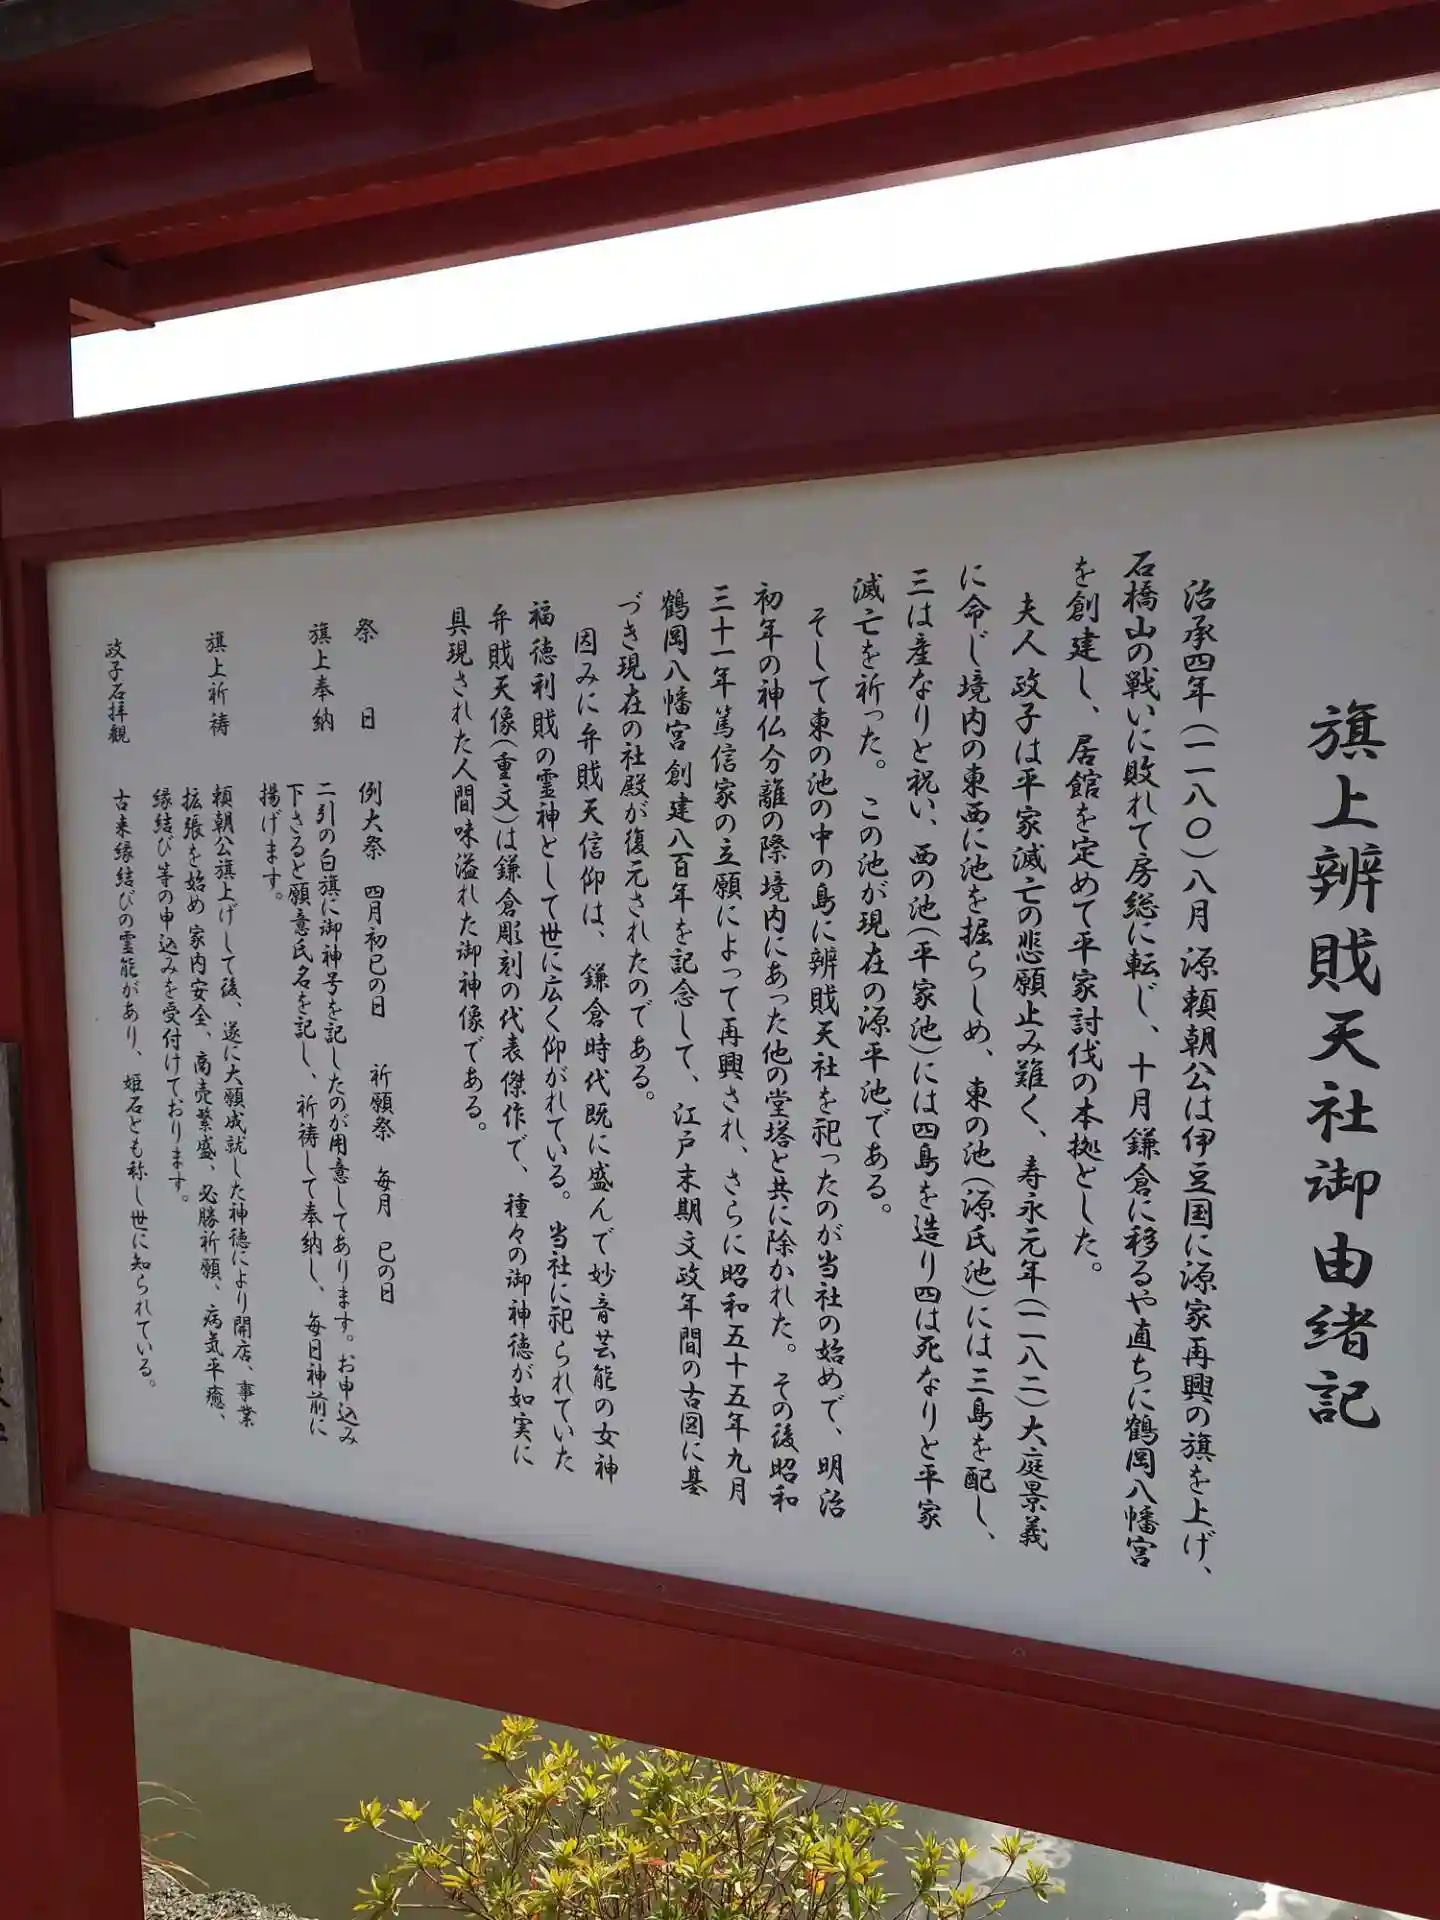 旗上辨財天社御由緒記
治承四年(一一八〇)八月 源頼朝公は伊豆国に源家再興の旗を上げ、
石橋山の戦いに敗れて房総に転じ、十月鎌倉に移るや直ちに鶴岡八幡宮
を創建し、居館を定めて平家討伐の本拠とした。
夫人政子は平家滅亡の悲願止み難く、寿永元年(一一八二)大庭景義
に命じ境内の東西に池を掘らしめ、東の池(源氏池)には三島を配し、
三は産なりと祝い、西の池(平家池)には四島を造り四は死なりと平家
滅亡を祈った。この池が現在の源平池である。
そして東の池の中の島に辨財天社を祀ったのが当社の始めで、明治
初年の神仏分離の際境内にあった他の堂塔と共に除かれた。その後昭和
三十一年篤信家の立願によって再興され、さらに昭和五十五年九月
鶴岡八幡宮創建八百年を記念して、江戸末期文政年間の古図に基
づき現在の社殿が復元されたのである。
因みに弁財天信仰は、鎌倉時代既に盛んで妙音芸能の女神
福徳利財の霊神として世に広く仰がれている。当社に祀られていた
弁財天像(重文)は鎌倉彫刻の代表傑作で、種々の御神徳が如実に
具現された人間味溢れた御神像である。
祭日 例大祭 四月初巳の日 祈願祭 毎月 巳の日
旗上奉納 二引の白旗に御神号を記したのが用意してあります。お申込み
下さると願意氏名を記し、祈祷して奉納し、毎日神前に
揚げます。
旗上祈祷 頼朝公旗上げして後、遂に大願成就した神徳により開店、事業
拡張を始め家内安全、商売繁盛、必勝祈願、病気平癒、
縁結び等の申込みを受付けております。
政子石拝観 古来縁結びの霊能があり、姫石とも称し世に知られている。